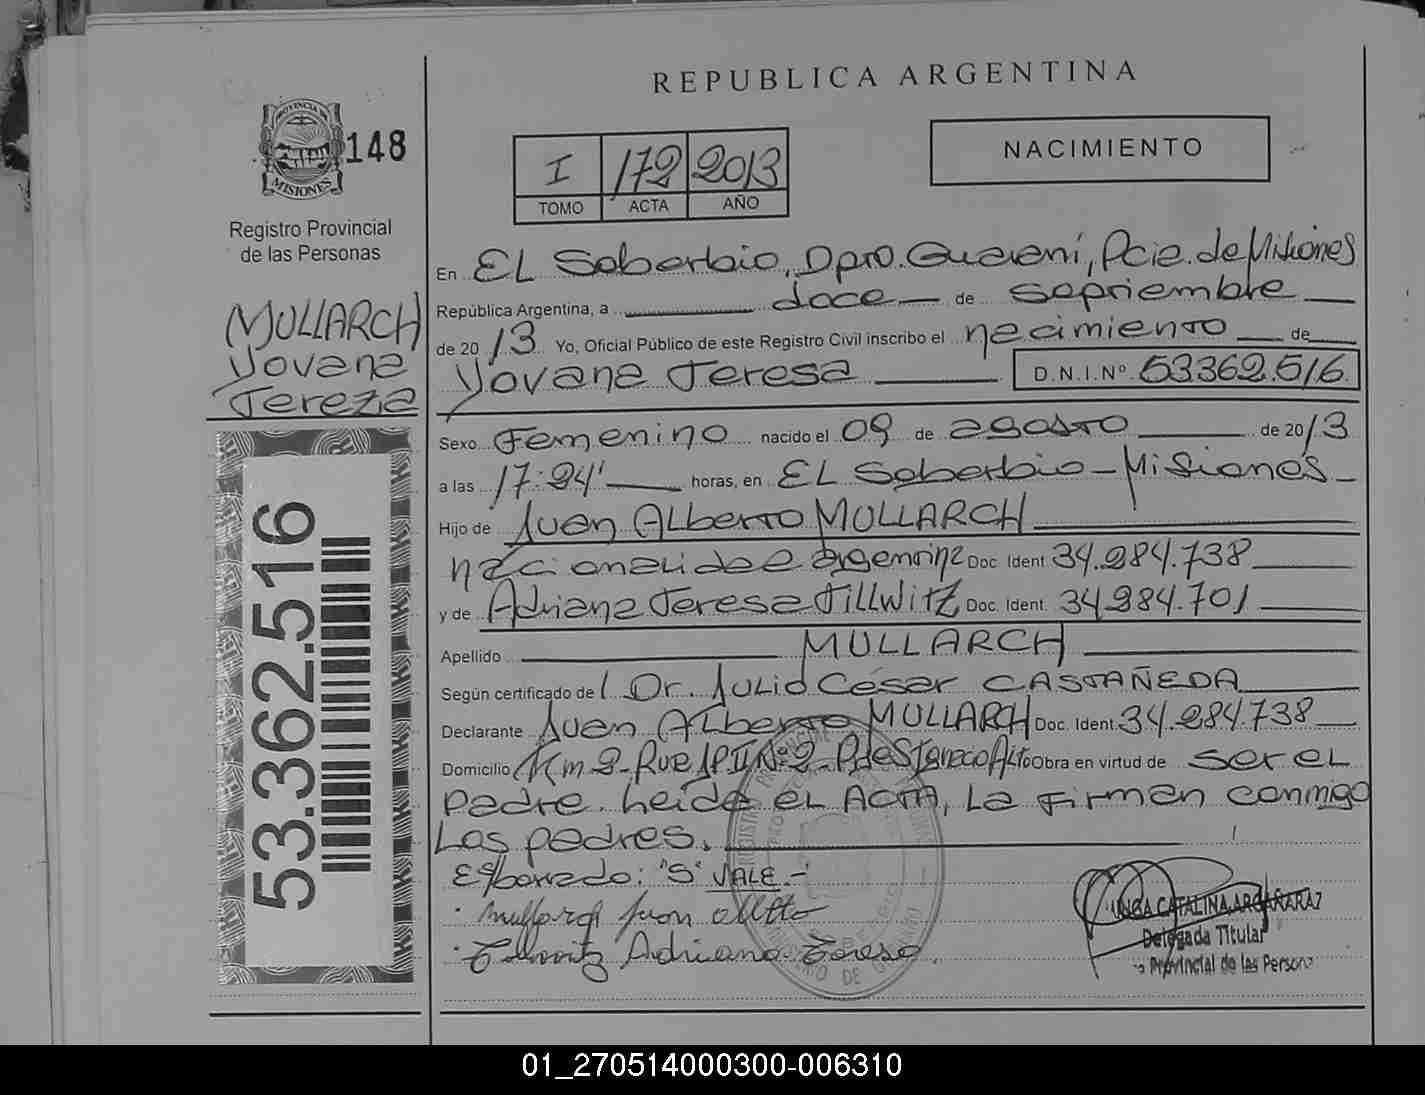 REPUBLICA ARGENTINA
PROVINCIA DE
MISIONES
148
Registro Provincial
de las Personas
MULLARCH
Yovana
Tereza
53.362.516
I 172 2013
TOMO ACTA AÑO
NACIMIENTO
En EL Soberbio, Dpto. Guaraní, Pcia. de Misiones
República Argentina, a doce de septiembre
de 2013 Yo, Oficial Público de este Registro Civil inscribo el nacimiento de
Yovana Teresa D.N.I.Nº 53362.516
Sexo Femenino nacido el 09 de agosto de 2013
a las 17:24' horas, en EL Soberbio - Misiones
Hijo de Juan Alberto MULLARCH
nacionalidad argentina Doc. Ident 34.284.738
y de Adriana Teresa TILLWITZ Doc. Ident. 34984.701
Apellido MULLARCH
Según certificado de Dr. Julio César CASTAÑEDA
Declarante Juan Alberto MULLARCH Doc. Ident. 34.284.738
Domicilio Km 2 - Obra en virtud de ser el
padre. Leida el ACTA, La firman conmigo
Los padres.
E/borrado: "S" VALE.-
Adriana Teresa
ARGAÑARAZ
Delegada Titular
Provincial de las Person
01_270514000300-006310